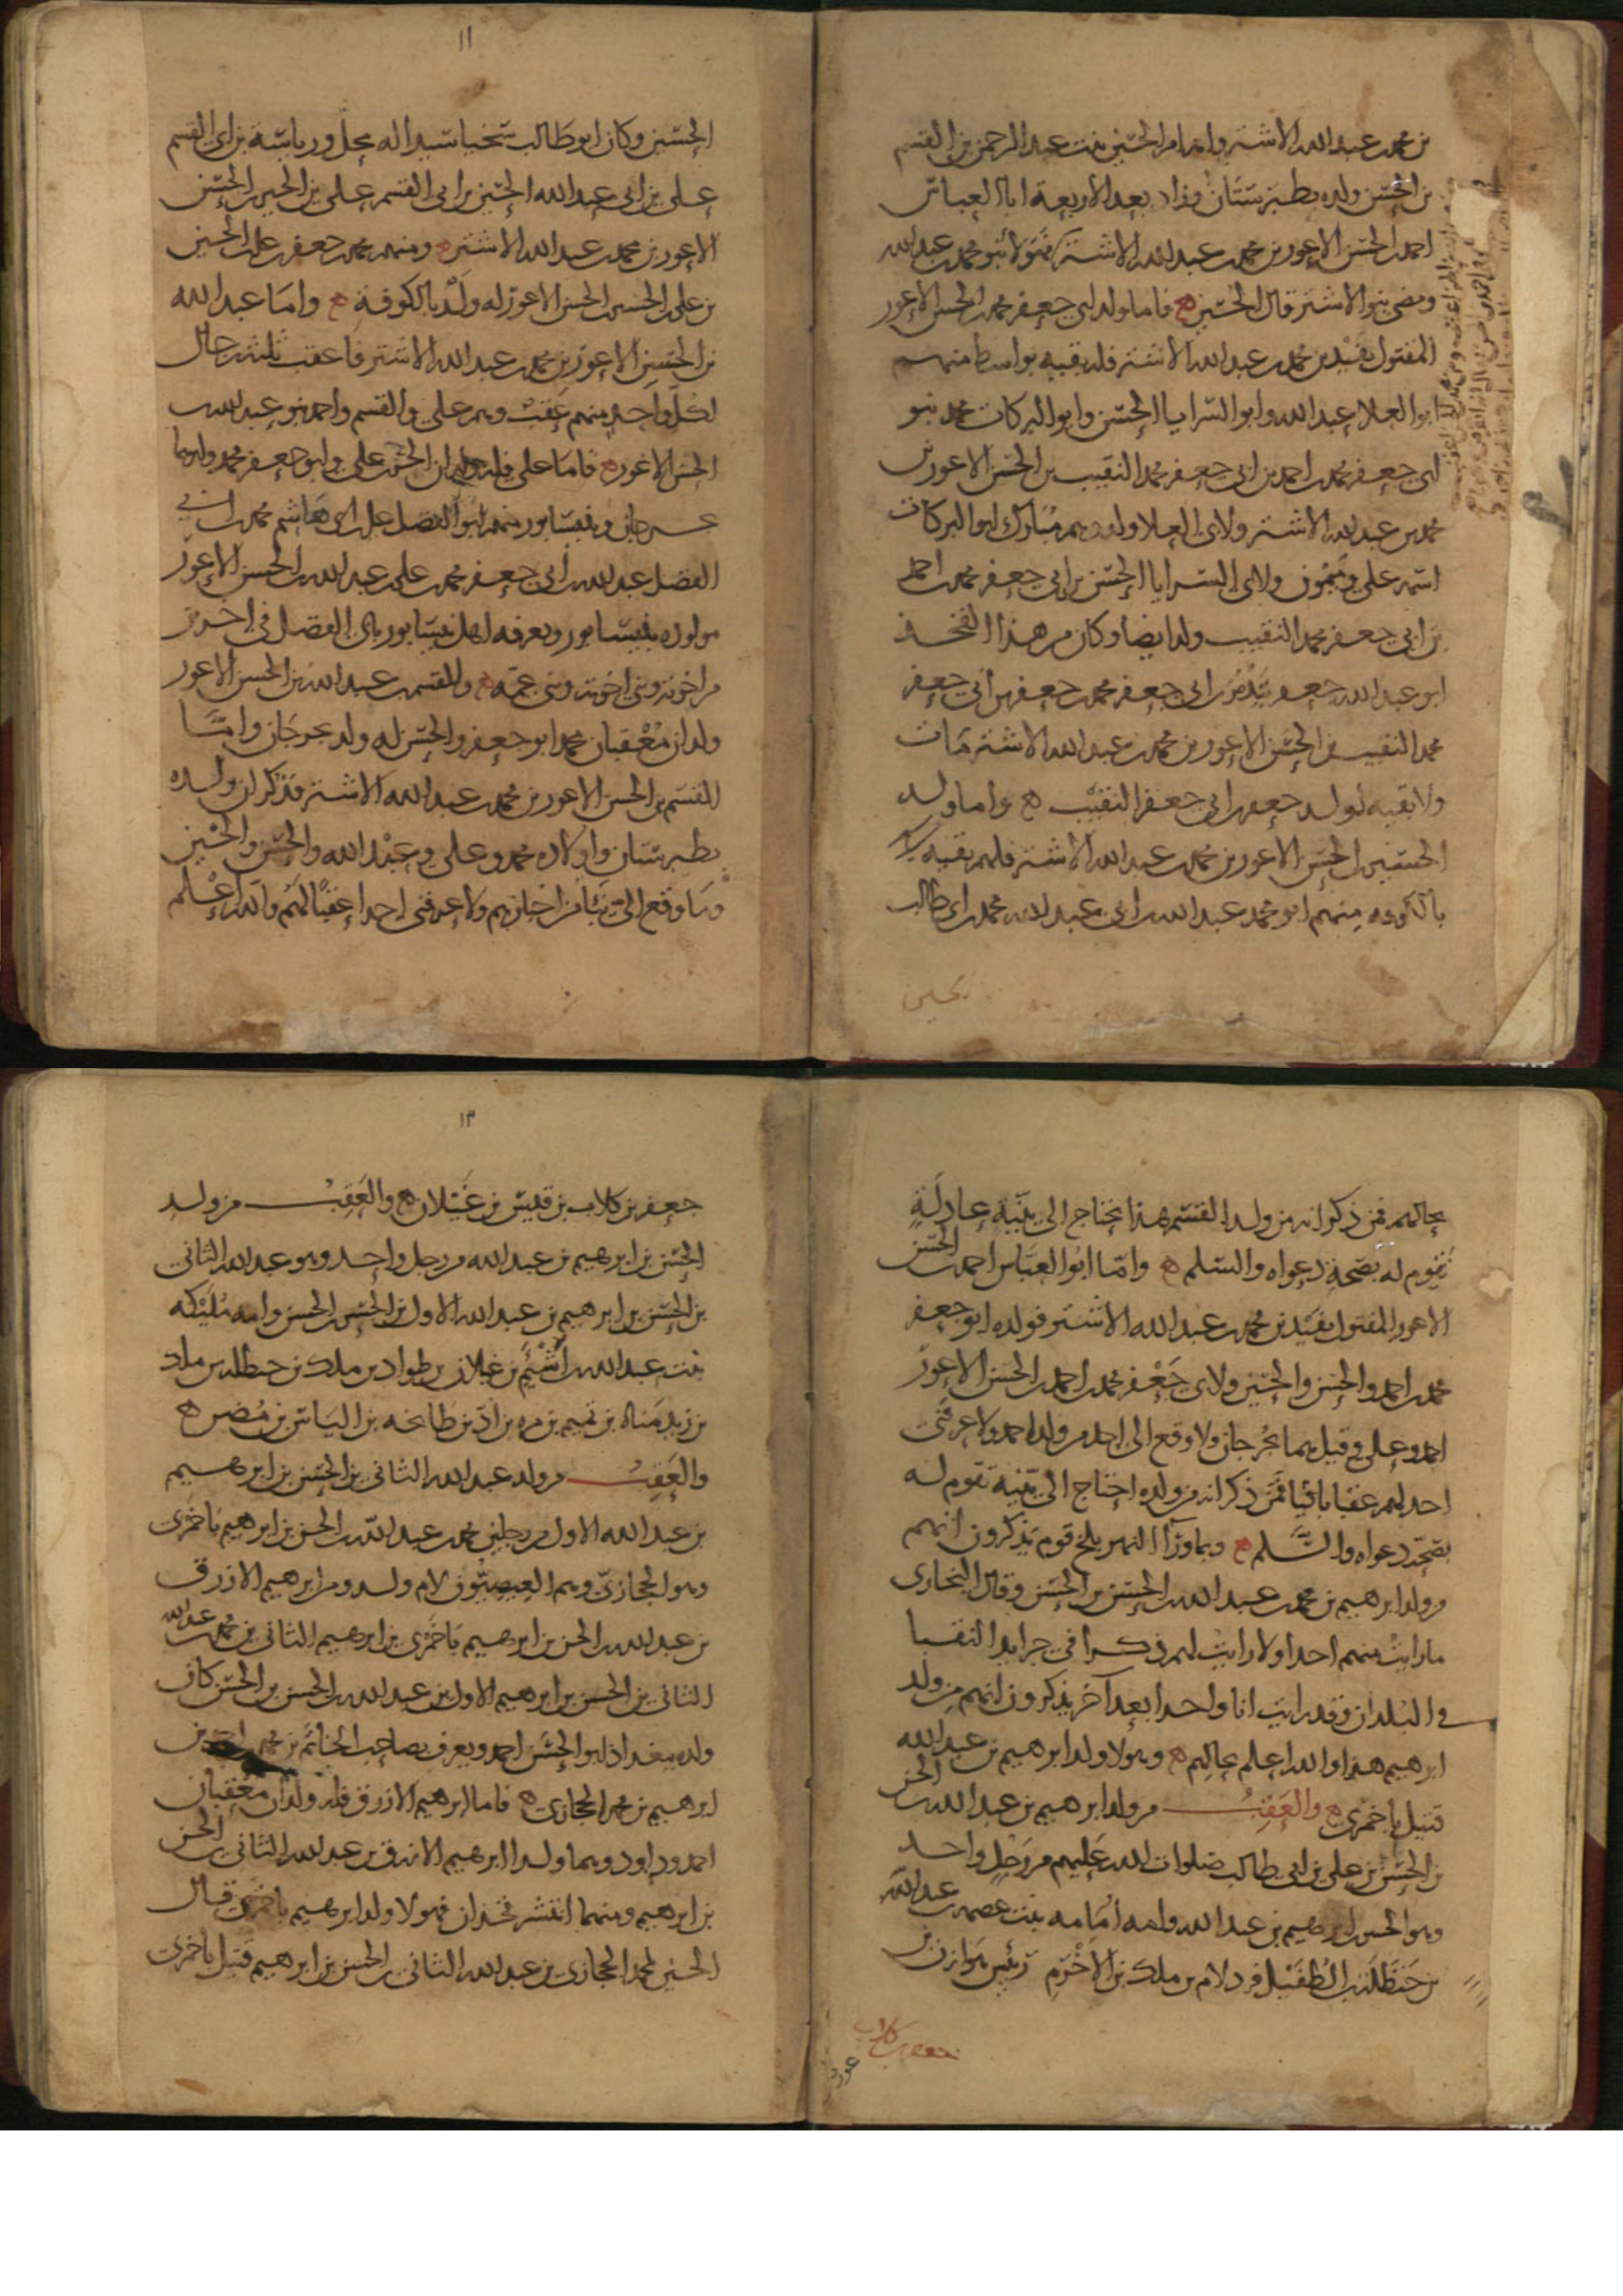 بن محمد بن عبد الله الاشتر وامه ام الحسين بنت عبد الرحمن بن القسم
بن الحسن ولده بطبرستان وزاد بعد الاربعة ابا العباس
احمد بن الحسن الاعور بن محمد بن عبد الله الاشتر فهولا بنو محمد بن عبد الله
ومضى بنو الاشتر قال الحسين ه فاما ولد ابى جعفر محمد بن الحسن الاعور
المقتول بفيد بن محمد بن عبد الله الاشتر فله بقيه بواسط منهم
ابو العلا عبد الله وابو السرايا الحسن وابو البركات محمد بنو
ابى جعفر محمد بن احمد بن ابى جعفر محمد النقيب بن الحسن الاعور بن
محمد بن عبد الله الاشتر ولابى العلا ولد وهم مبارك ابو البركات
اسمه على وميمون ولابى السرايا الحسن بن ابى جعفر محمد بن احمد
بن ابى جعفر محمد النقيب ولد ايضا وكان من هذا الفخذ
ابو عبد الله جعفر بتدمر بن ابى جعفر محمد بن جعفر بن ابى جعفر
محمد النقيب بن الحسن الاعور بن محمد بن عبد الله الاشتر مات
ولا بقيه لولد جعفر بن ابى جعفر النقيب ه واما ولد
الحسين بن الحسن الاعور بن محمد بن عبد الله الاشتر فلهم بقيه
بالكوفه منهم ابو محمد عبد الله بن ابى عبد الله محمد بن ابى طالب
الحسين
١١
الحسين وكان ابو طالب سخيا سيدا له محل ورياسة بن ابى القسم
على بن ابى عبد الله الحسين بن ابى القسم على بن الحسين بن الحسن
الاعور بن محمد بن عبد الله الاشتر ه ومنهم محمد بن جعفر بن على بن الحسين
بن على بن الحسين بن الحسن الاعور له ولد بالكوفة ه واما عبد الله
بن الحسن الاعور بن محمد بن عبد الله الاشتر فاعقب ثلثه رجال
لكل واحد منهم عقب وهم على والقسم واحمد بنو عبد الله بن
الحسن الاعور ه فاما على فله ولدان الحسن بن على وابو جعفر محمد ولدهما
بجرجان ونيسابور منهم ابو الفضل على بن ابى هاشم محمد بن ابى
الفضل عبد الله بن ابى جعفر محمد بن على بن عبد الله بن الحسن الاعور
مولوده بنيسابور ويعرفه اهل نيسابور بابى الفضل فى اخرين
من اخوته وبنى اخوته وبنى عمه ه وللقسم بن عبد الله بن الحسن الاعور
ولدان معقبان محمد ابو جعفر والحسن له ولد بجرجان واما
القسم بن الحسن الاعور بن محمد بن عبد الله الاشتر فذكر ان ولده
بطبرستان واولاده محمد وعلى وعبد الله والحسن والحسين
وما وقع الى شيا من اخبارهم ولا عرفنى احدا عقبا لهم والله اعلم
بحالهم فمن ذكر انه من ولد القسم هذا يحتاج الى بينة عادلة
تقوم له بصحة دعواه والسلم ه واما ابو العباس احمد بن الحسن
الاعور المقتول بفيد بن محمد بن عبد الله الاشتر فولده ابو جعفر
محمد بن احمد والحسن والحسين ولابى جعفر محمد بن احمد بن الحسن الاعور
احمد وعلى وقيل هما بجرجان ولا وقع الى احد من ولد احمد ولا عرفنى
احد لهم عقبا باقيا فمن ذكر انه من ولده احتاج الى بينه تقوم له
بصحة دعواه والسلم ه وبما ورآ النهر ببلخ قوم يذكرون انهم
من ولد ابرهيم بن محمد بن عبد الله بن الحسن بن الحسن وقال البخارى
ما رايت منهم احدا ولا رايت لهم ذكرا فى جرايد النقبا
فى البلدان وقد رايت انا واحدا بعد آخر يذكرون انهم من ولد
ابرهيم هذا والله اعلم بحالهم ه وهولا ولد ابرهيم بن عبد الله
قتيل باخمرى ه والعقب من ولد ابرهيم بن عبد الله بن الحسن
بن الحسن بن على بن ابى طالب صلوات الله عليهم من رجل واحد
وهو الحسن بن ابرهيم بن عبد الله وامه امامه بنت عصمه بن عبد الله
بن حنظلة بن الطفيل فرد لام بن ملك بن الاخرم رئيس هوازن بن
جعفر بن كلاب
١٣
جعفر بن كلاب بن قيس بن غيلان ه والعقب من ولد
الحسن بن ابرهيم بن عبد الله من رجل واحد وهو عبد الله الثانى
بن الحسن بن ابرهيم بن عبد الله الاول بن الحسن بن الحسن وامه مليكه
بنت عبد الله بن اشيم بن غيلان بن طواد بن ملك بن حنظله بن ملك
بن زيد مناه بن تميم بن مره بن اد بن طابخه بن الياس بن مضر ه
والعقب من ولد عبد الله الثانى بن الحسن بن ابرهيم
بن عبد الله الاول من رجلين محمد بن عبد الله بن الحسن بن ابرهيم باخمرى
وهو الحجازى وهم العيصيون لام ولد ومن ابرهيم الازرق
بن عبد الله بن الحسن بن ابرهيم باخمرى بن ابرهيم الثانى بن محمد بن عبد الله
الثانى بن الحسن بن ابرهيم الاول بن عبد الله بن الحسن بن الحسن كان
ولده ببغداد ابو الحسن احمد ويعرف بصاحب الخاتم بن محمد بن احمد بن
ابرهيم بن محمد الحجازى ه فاما ابرهيم الازرق فله ولدان معقبان
احمد وداود وهما ولدا ابرهيم الازرق بن عبد الله الثانى بن الحسن
بن ابرهيم ومنهما انتشر فخذان فهولا ولد ابرهيم باخمرى قال
الحسين لمحمد الحجازى بن عبد الله الثانى بن الحسن بن ابرهيم قتيل باخمرى